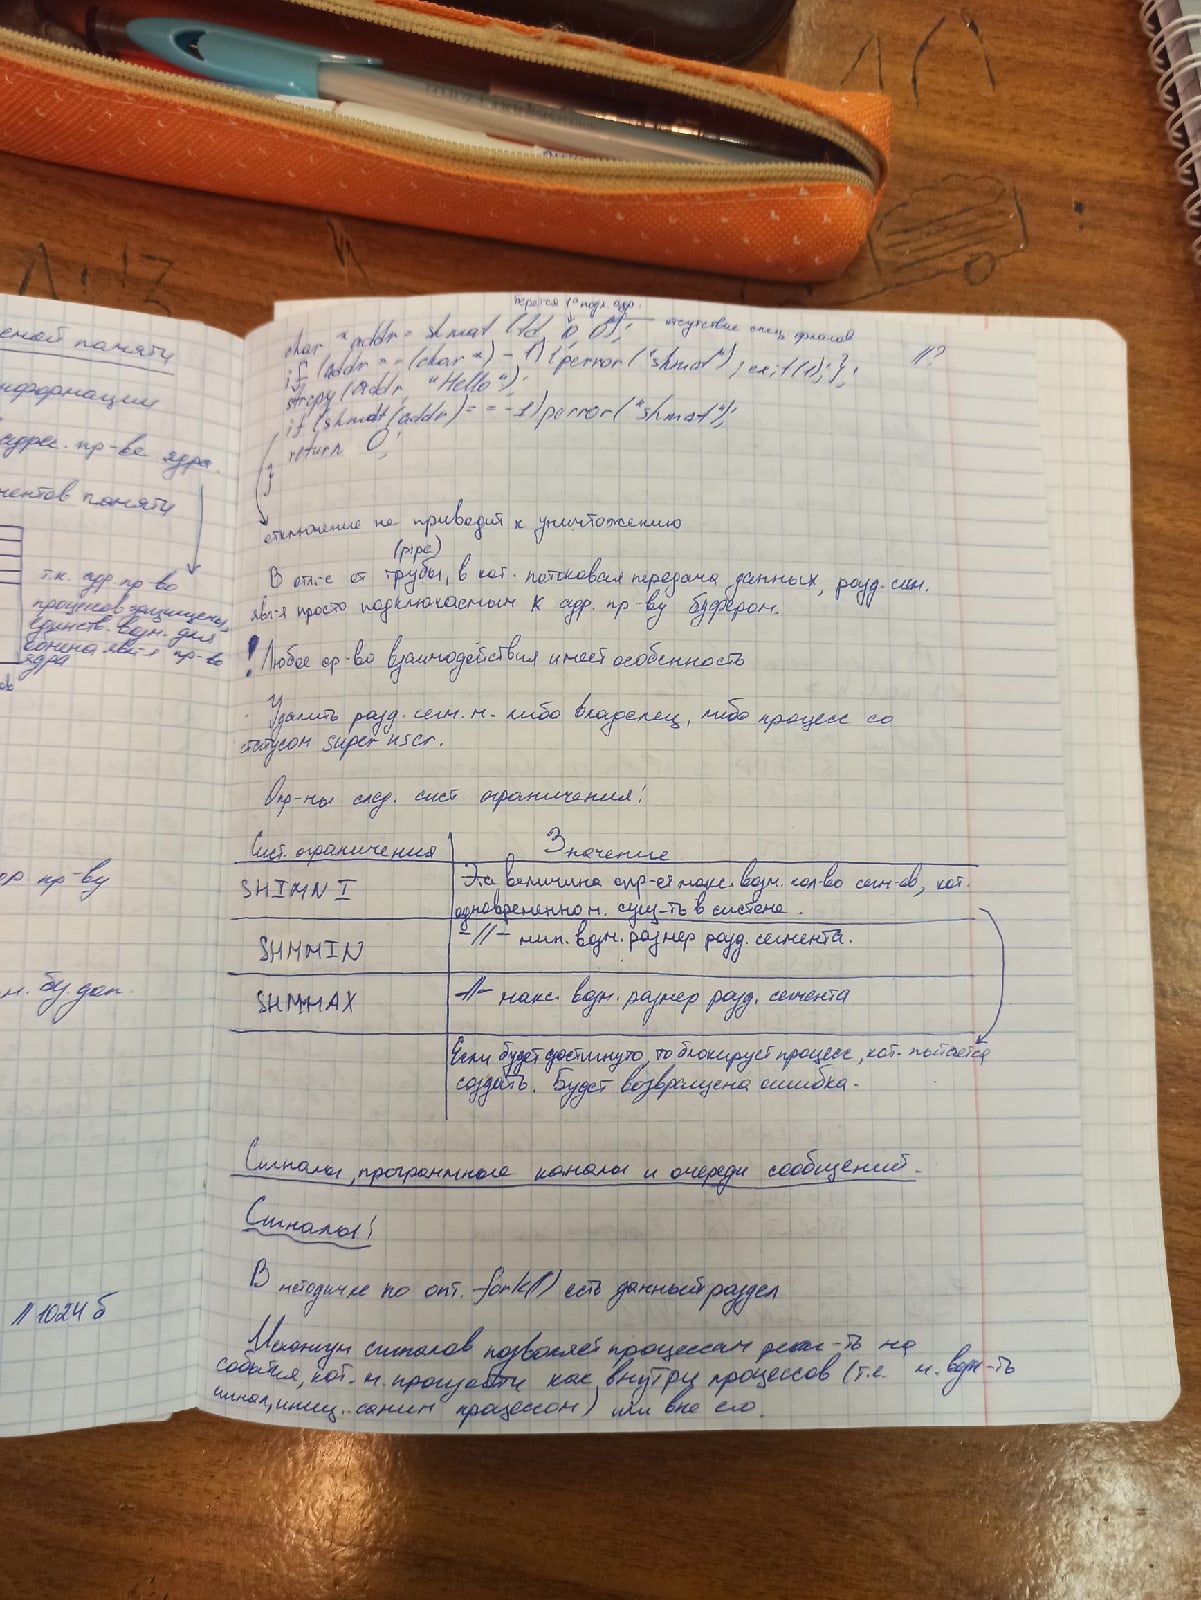 емой памяти
нформации
адрес. пр-ве ядра.
ментов памяти
т.к. адр. пр-во
процессов защищены,
единств. возм. для
явл-я пр-во
ядра
ов
пр-ву
м. бу доп.
// 1024 б
берётся 1й подх. адр.
отсутствие спец. флагов
char *addr = shmat (fd, 0, 0);
if (addr == (char *) -1) {perror("shmat"); exit(1);};
//?
strcpy(addr, "Hello");
if (shmdt(addr) == -1) perror("shmat");
return 0;
}
отключение не приводит к уничтожению
(pipe)
В отл-е от трубы, в кот. потоковая передача данных, разд. сегм.
явл-я просто подключаемым к адр. пр-ву буфером.
! Любое ср-во взаимодействия имеет особенность
Удалить разд. сегм. м. либо владелец, либо процесс со
статусом super user.
Опр-ны след. сист. ограничения:
Сист. ограничения
Значение
SHIMNI
Эта величина опр-ет макс. возм. кол-во сегм-ов, кот.
одновременно м. сущ-ть в системе.
SHMMIN
-//- мин. возм. размер разд. сегмента.
SHMMAX
-//- макс. возм. размер разд. сегмента
Если будет достигнуто, то блокирует процесс, кот. пытается
создать. Будет возвращена ошибка.
Сигналы, программные каналы и очереди сообщений.
Сигналы:
В методичке по опт. fork() есть данный раздел
Механизм сигналов позволяет процессам реаг-ть на
события, кот. м. произойти как внутри процессов (т.е. м. возн-ть
самим процессом) или вне его.